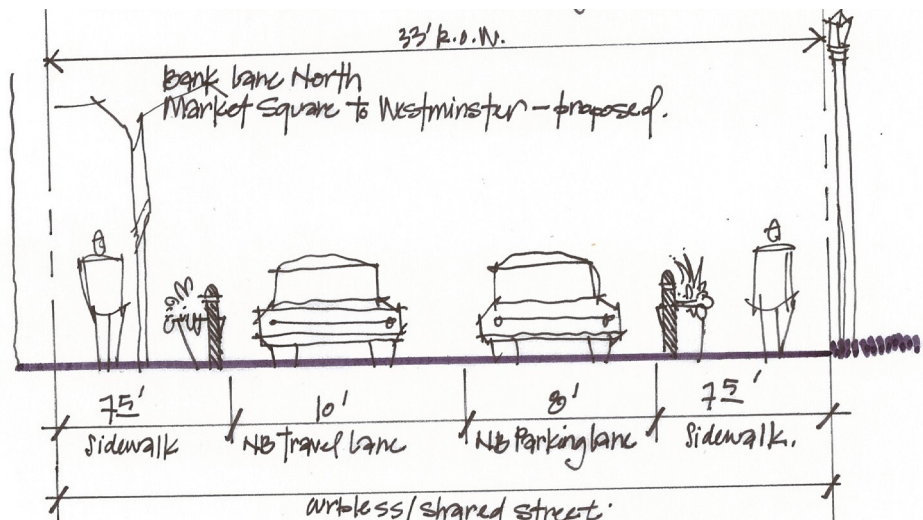 33' R.O.W.
Bank Lane North
Market Square to Westminster – proposed.
7 5'
10'
8'
7 5'
Sidewalk
NB Travel Lane
NB Parking lane
Sidewalk.
curbless/shared street.